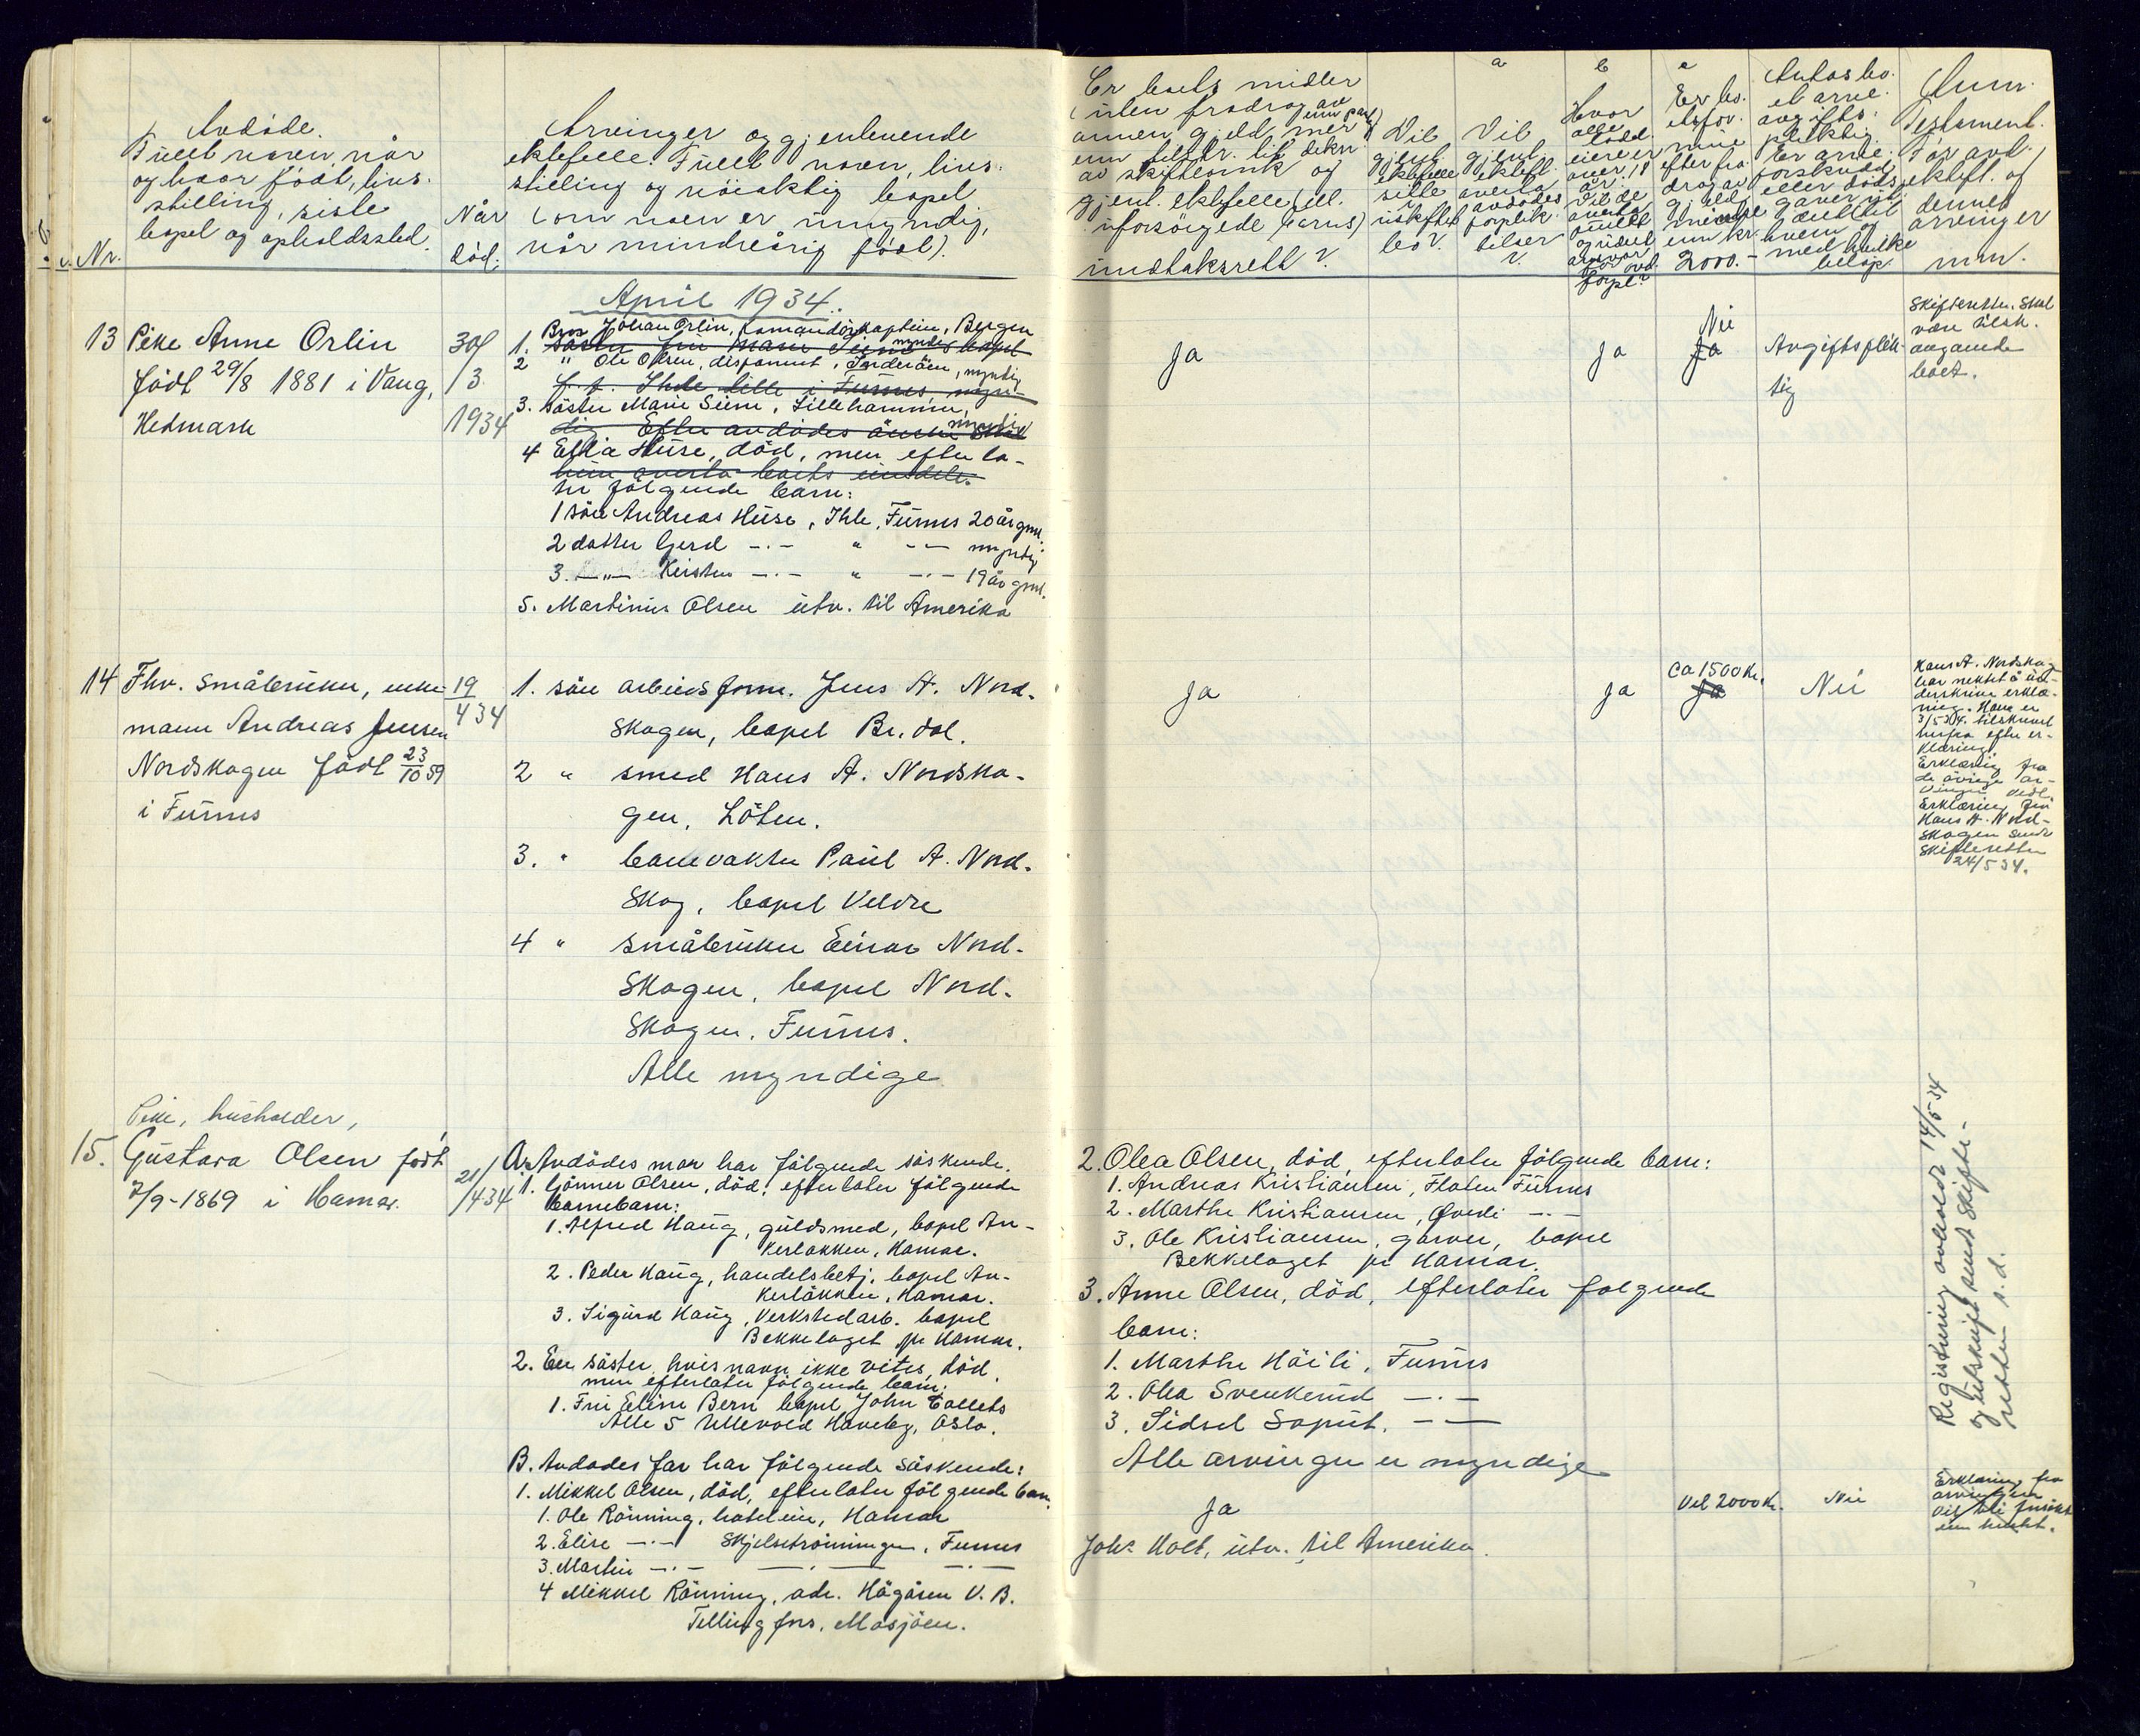 Avdöde.
Fullt navn, når
og hvor födt, livs-
stilling, siste
bopel og opholdssted.
Nr.
Når
död.
Arvinger og gjenlevende
ektefelle. Fullt navn, livs-
stilling og nöiaktig bopel
(om noen er umyndig,
når mindreårig födt).
Er boets midler
(uten fradrag av
annen gjeld enn pant)
mer
enn tilstr. til dekn.
av skifteomk og
gjenl. ektefelle (ell.
uforsörgede barns)
inntaksrett?
Vil
gjenl.
ektefelle
sitte
i
uskiftet
bo?
a
Vil
gjenl.
ektef.
overta
avdödes
forplik-
telser
?
b
Hvor
alle
lodd-
eiere er
over 18
år: Vil de
overta
avdödes
forpl.?
c
Er bo-
ets for-
mue
efter fra-
drag av
gjeld
mindre
enn kr.
2000.-
Antas bo-
et arve-
avgifts-
pliktig.
Er arve-
forskudd
eller döds-
gaver
med hvilke
belöp.
Anm.
Testament.
For avd.
ektef. og
dennes
arvinger
m.m.
April 1934.
13 Pike Anne Orlin
födt 29/8 1881 i Vang,
Hedmark
30/
/3
1934
1. Bror Johan Orlin, komandörkaptein, Bergen
myndig
2 " Ole Olsen, disponent, Sanderöen, myndig
3. Söster Marie Siem, Lillehammer,
myndig
4 Ella Huse, död, men efterla-
ter följgende barn:
1 sön Andreas Huse, Ihle, Furnes 20 år gml.
2 datter Gerd -.- " -.- myndig
3. -"- Kirsten -.- " -.- 19 år gml.
5. Martinus Olsen utv. til Amerika
Ja
Ja
Nei
Ja
Avgiftsplik-
tig
Skifteretten. Skal
være tilsk.
angående
boet.
14 Fhv. småbruker, enke-
mann Andreas Jensen
Nordskogen födt 23/10 59
i Furnes
19
4 34
1. sön arbeidsform. Jens A. Nord-
skogen, bopel Br.dal.
2 " smed Hans A. Nordsko-
gen, Löten.
3. " banevokter Paul A. Nord-
skog, bopel Veldre
4 " småbruker Einar Nord-
skogen, bopel Nord-
skogen, Furnes.
Alle myndige
Ja
Ja
Ca 1500 kr.
Ja
Nei
Hans A. Nordskog
har nektet å un-
derskrive erklæ-
ring. Han er
3/5 34. tilskrevet
herfra efter er-
klæring.
Erklæring fra
de övrige ar-
vinger vedl.
Erklæring fra
Hans A. Nord-
skogen sendt
Skifteretten
24/5 34.
Pike, husholder,
15. Gustava Olsen födt
7/9-1869 i Hamar.
21/
/4 34
A. Avdödes mor har fölgende söskende.
1. Gunner Olsen, död, efterlater fölgende
barnebarn:
1. Alfred Haug, guldsmed, bopel An-
kerlökken, Hamar.
2. Peder Haug, handelsbetj. bopel An-
kerlökken, Hamar.
3. Sigurd Haug, Verkstedarb. bopel
Bekkelaget pr Hamar.
2. En söster, hvis navn ikke vites, död,
men efterlater fölgende barn:
1. Fru Eline Bern bopel John Colletts
Alle 5 Ullevold Haveby, Oslo.
B. Avdödes far har fölgende söskende:
1. Mikkel Olsen, död, efterlater fölgende barn
1. Ole Rönning, hoteleier, Hamar
2. Elise -.- Skjelsetrönningen, Furnes
3. Martin -.- -.- -.-
4 Mikkel Rönning, adr. Hågåsen V. B.
Telling fors. Mosjöen.
2. Olea Olsen, död, efterlater fölgende barn:
1. Andreas Kristiansen, Floten Furnes
2. Marthe Kristiansen, Qveli -.-
3. Ole Kristiansen, garver, bopel
Bekkelaget pr Hamar.
3. Anne Olsen, död, efterlater fölgende
barn:
1. Marthe Höili, Furnes
2. Olea Svenkerud -.-
3. Sidsel Soput. -.-
Alle arvinger er myndige
Ja
Vel 2000 kr.
Nei
Joh. Holt, utv. til Amerika.
Registrering avholdt 14/5 34
og utskrift sendt Skifte-
retten s.d.
Erklæring fra
arvingene
vil bli